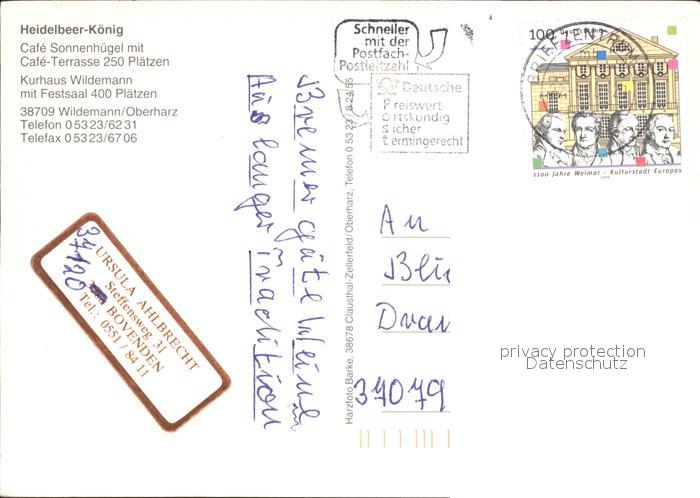 Heidelbeer-König
Café Sonnenhügel mit
Café-Terrasse 250 Plätzen
Kurhaus Wildemann
mit Festsaal 400 Plätzen
38709 Wildemann/Oberharz
Telefon 0 53 23/62 31
Telefax 0 53 23/67 06
Schneller
mit der
Postfach-
Postleitzahl
Deutsche
Preiswert
ortskundig
sicher
termingerecht
100 Deutschland
BRIEFZENTRUM
1100 Jahre Weimar - Kulturstadt Europas
1999
Bremer gute Weine
Aus langer Tradition
Harzfoto Barke, 38678 Clausthal-Zellerfeld/Oberharz, Telefon 0 53 23
URSULA AHLBRECHT
Steffensweg 31
37120 BOVENDEN
Tel.: 0551 / 84 11
An
Bli
Dran
37079
privacy protection
Datenschutz